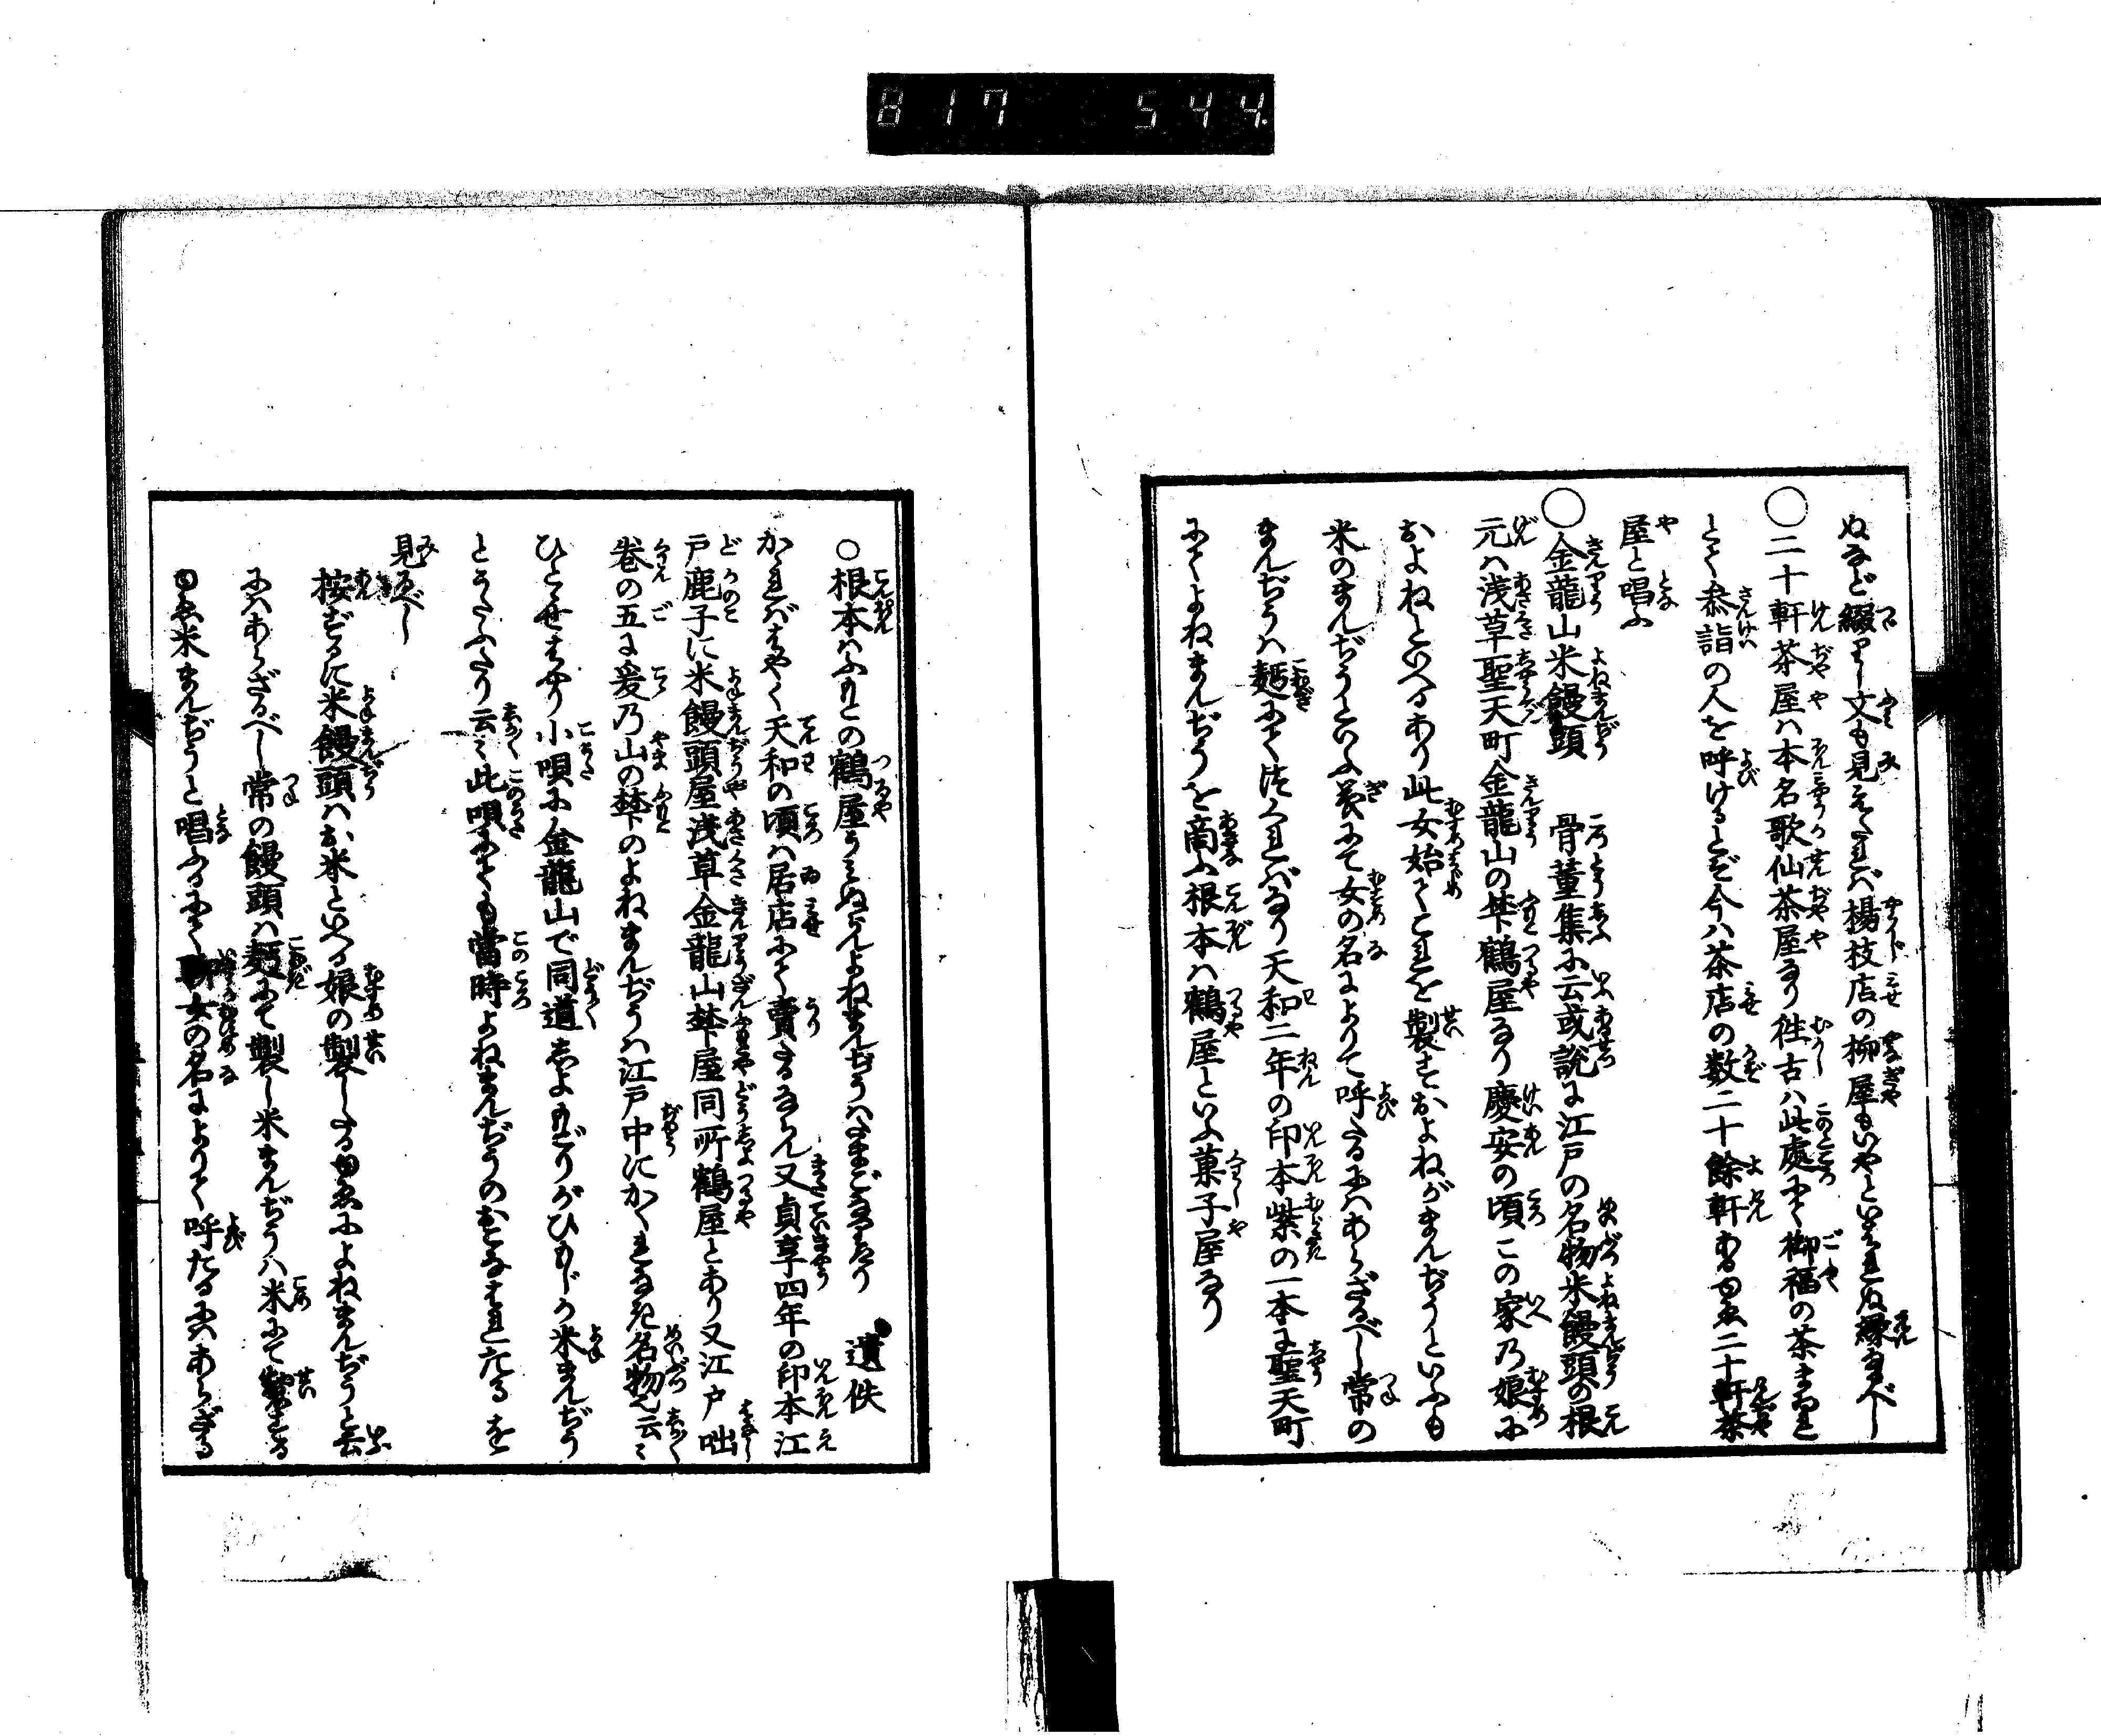 817 544
ぬなど綴りし文も見えたれバ楊枝店の柳屋もいやといはれぬ縁なるべし
〇二十軒茶屋ハ本名歌仙茶屋なり往古ハ此處にて御福の茶まゐれ
とて参詣の人を呼けるとぞ今ハ茶店の数二十餘軒あるゆゑ二十軒茶
屋と唱ふ
〇金龍山米饅頭 骨董集に云或説に江戸の名物米饅頭の根
元ハ浅草聖天町金龍山の梺鶴屋なり慶安の頃この家乃娘に
およねといへるあり此女始てこれを製すおよねがまんぢうといふも
米のまんぢうといふ義にて女の名によりて呼たるにハあらざるべし常の
まんぢうハ麺にてつくれバなり天和二年の印本紫の一本に聖天町
にてよねまんぢうを商ふ根本ハ鶴屋といふ菓子屋なり
〇根本ハふもとの鶴屋うみぬらんよねまんぢうハたまごなりけり 遺佚
かゝれバはやく天和の頃ハ居店にて賣るならん又貞享四年の印本江
戸鹿子に米饅頭屋浅草金龍山梺屋同所鶴屋とあり又江戸咄
巻の五に爰乃山の梺のよねまんぢうハ江戸中にかくれなき名物也云々
ひとゝせはやり小唄に金龍山で同道しよもどりがひもじか米まんぢう
とうたふたり云々此唄にても當時よねまんぢうのおこなはれたるを
見るべし
按ずるに米饅頭ハお米といへる娘の製したるゆゑによねまんぢうと云
にハあらざるべし常の饅頭ハ麺にて製し米まんぢうハ米にて製する
ゆゑ米まんぢうと唱ふるにて女の名によりて呼たるにハあらざる